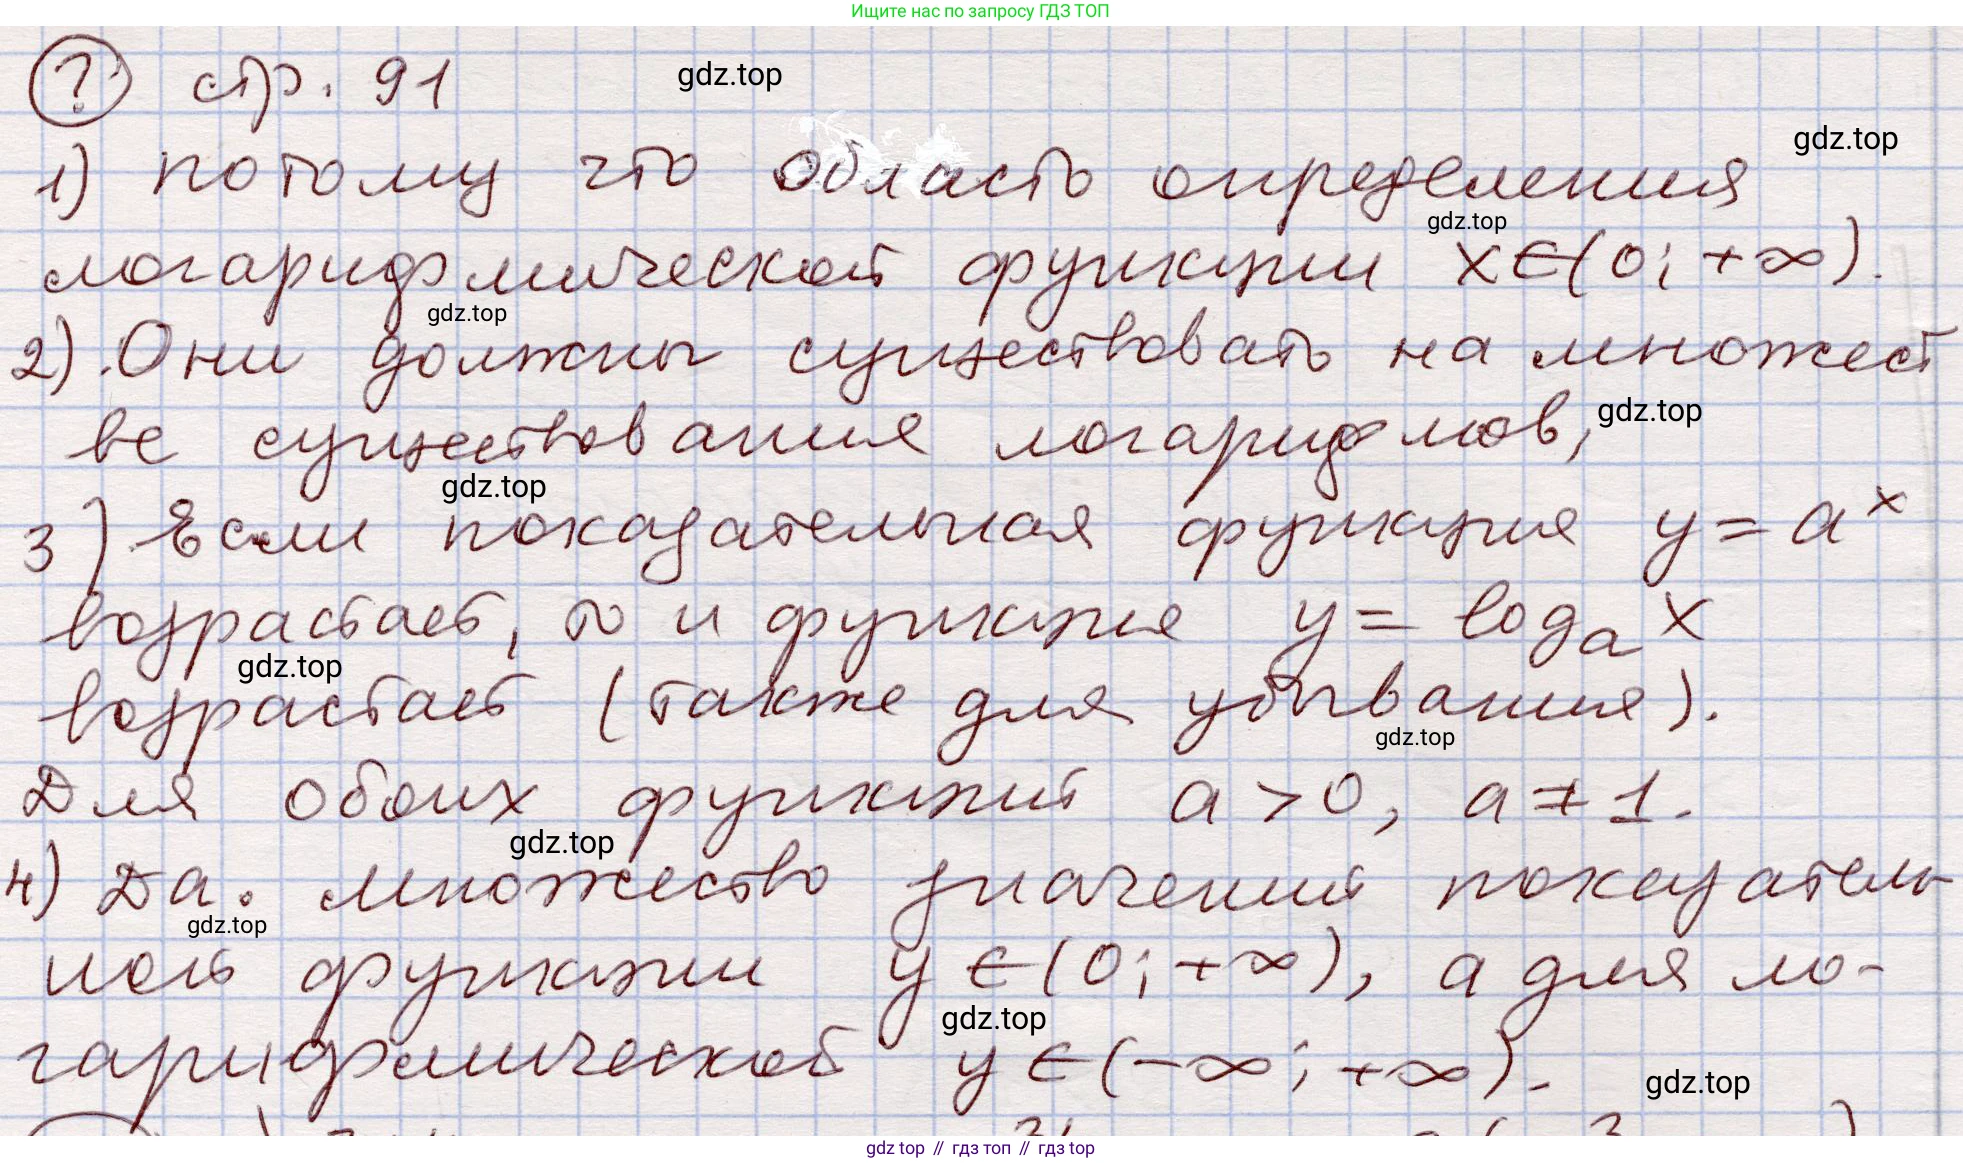 Ищите нас по запросу ГДЗ ТОП
? стр. 91
gdz.top
gdz.top
1) потому что область определения
gdz.top
логарифмической функции x∈(0; +∞).
gdz.top
2) Они должны существовать на множест
ве существования логарифмов,
gdz.top
gdz.top
3) Если показательная функция y = a^x
возрастает, то и функция y = log_a x
gdz.top
возрастает (также для убывания).
gdz.top
Для обоих функций a > 0, a ≠ 1.
gdz.top
4) Да. множество значений показатель
gdz.top
ной функции y ∈ (0; +∞), а для ло-
gdz.top
гарифмической y ∈ (-∞; +∞).
gdz.top
gdz top // гдз топ // гдз top